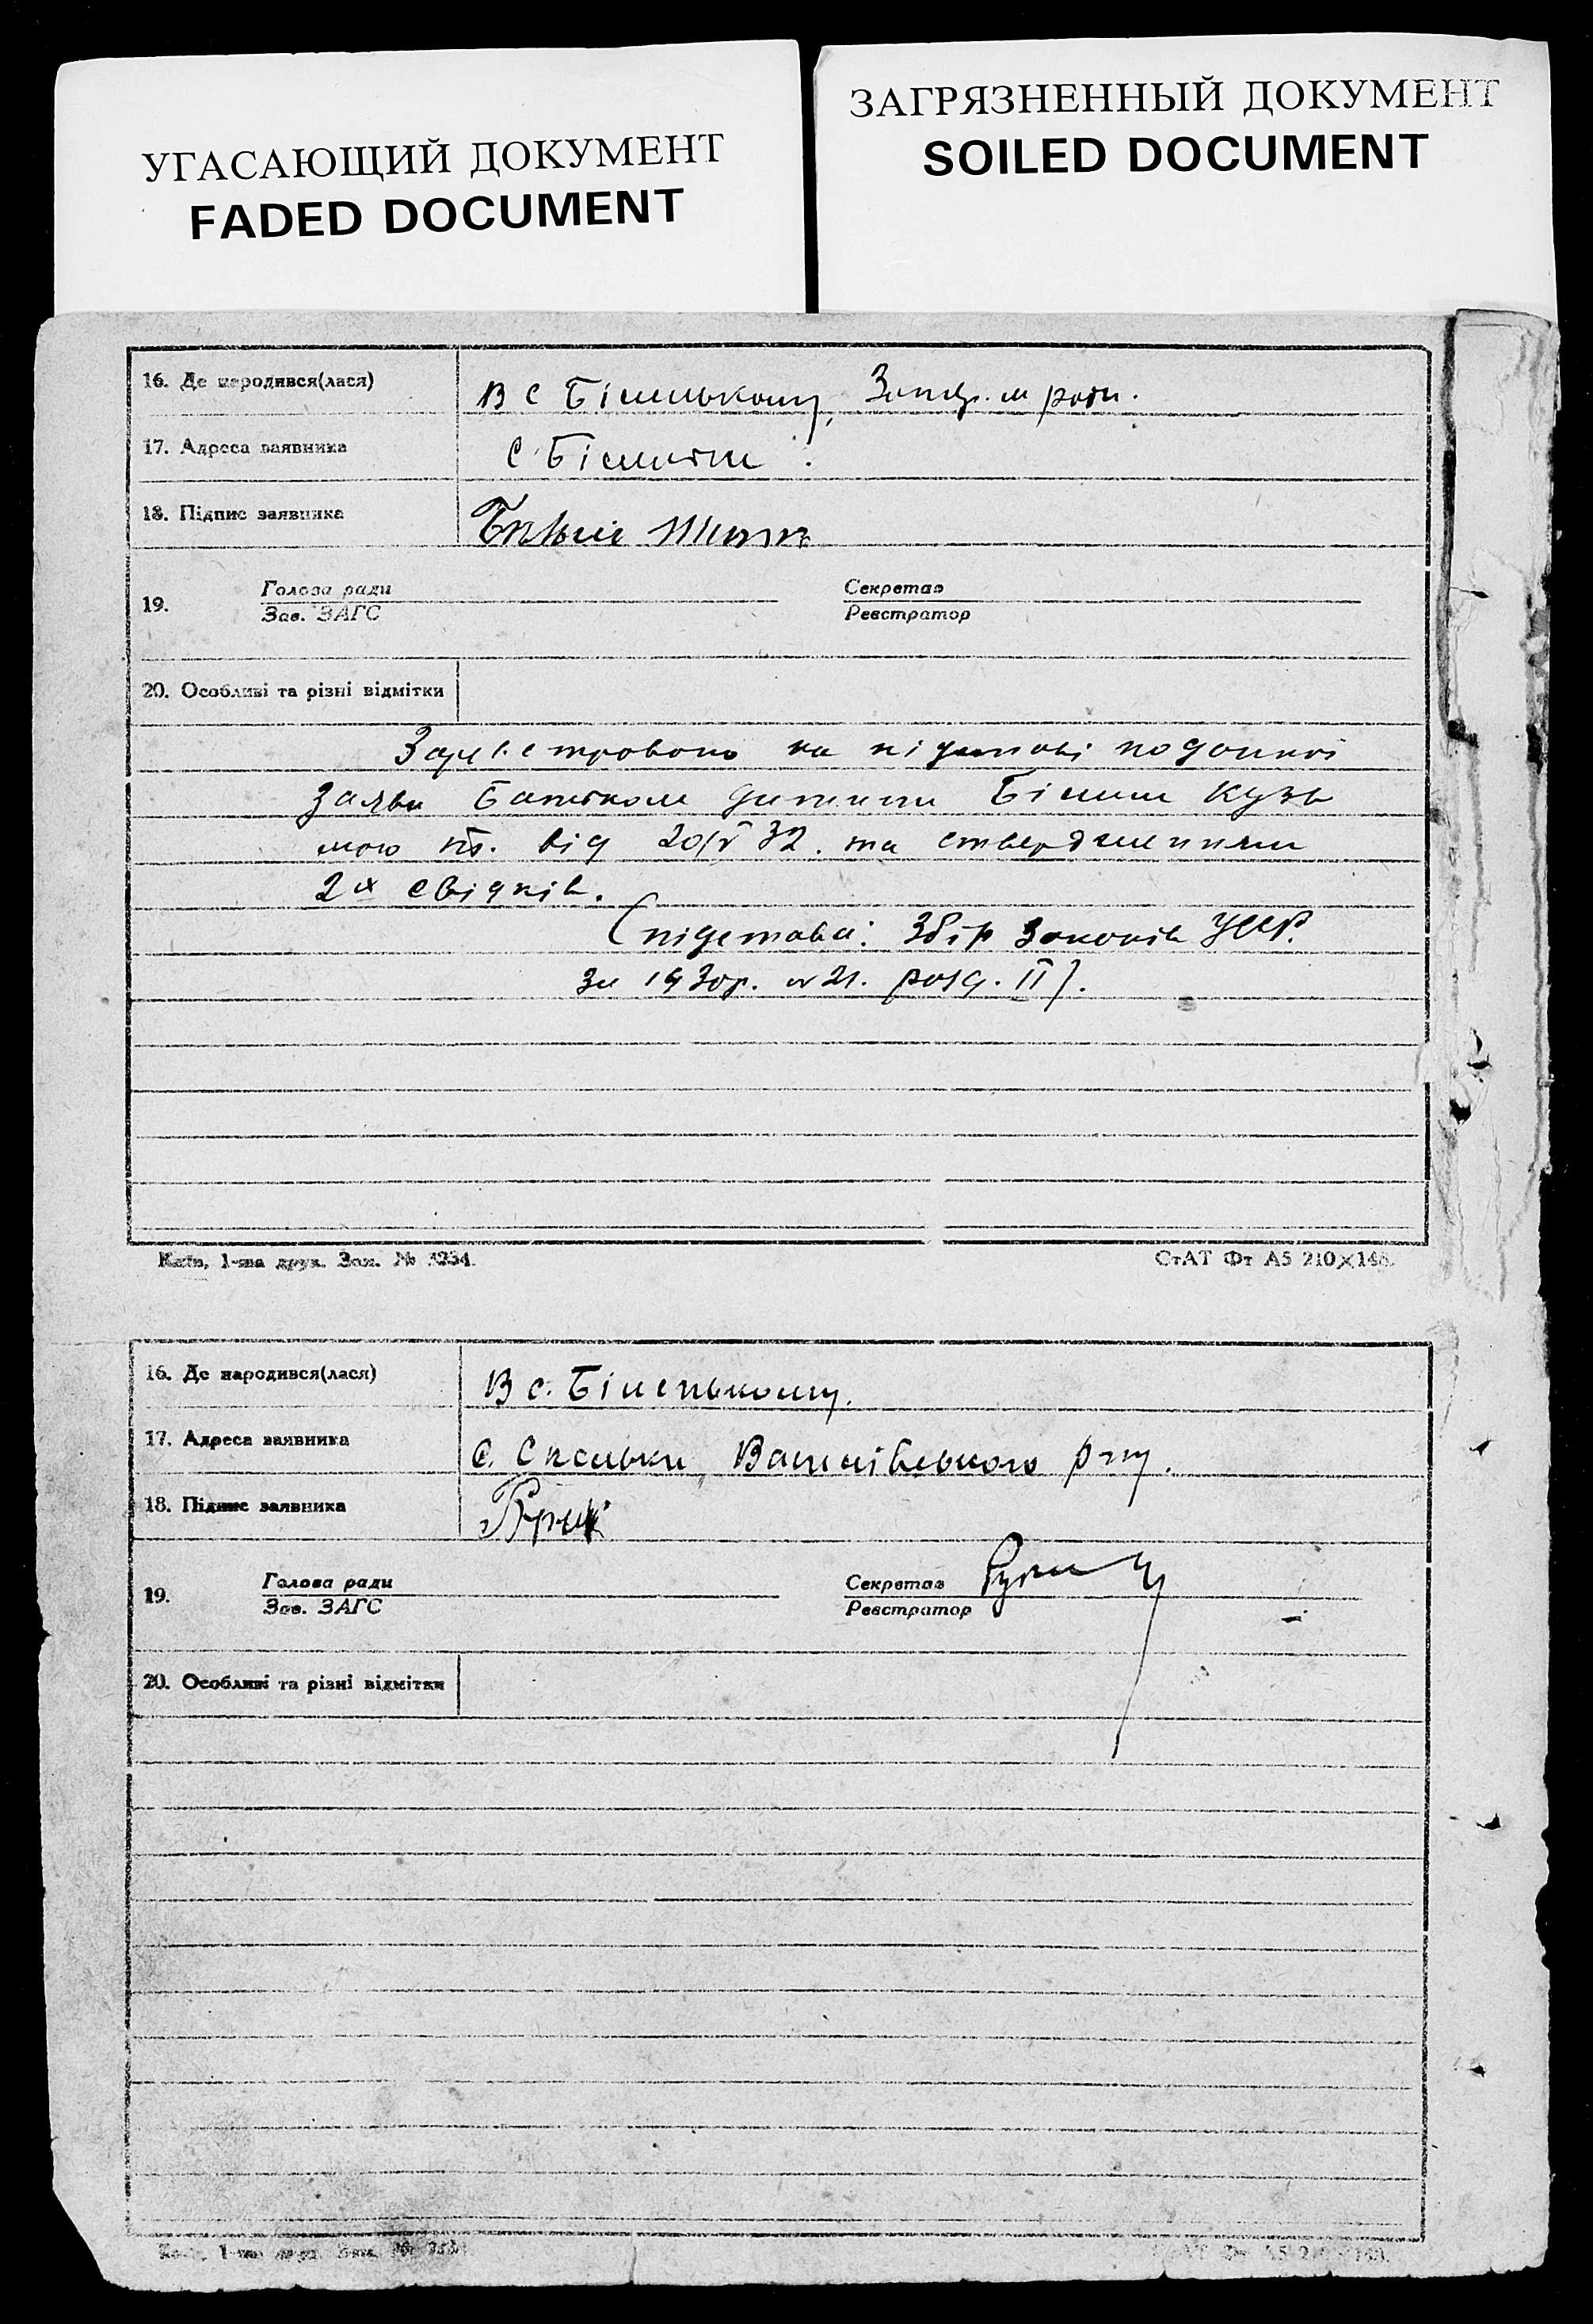 УГАСАЮЩИЙ ДОКУМЕНТ
FADED DOCUMENT
ЗАГРЯЗНЕННЫЙ ДОКУМЕНТ
SOILED DOCUMENT
16. Де народився(лася)
В с Біленькому,
17. Адреса заявника
с
18. Підпис заявника
19.
Голова ради
Зав. ЗАГС
Секретар
Реєстратор
20. Особливі та різні відмітки
Зареєстровано на підставі поданої
заяви батьком дитини Кузь
мою від 20/V 32. та ствердженнями
2х свідків.
(підстава: Збір Законів УСРР.
за 193 р. № 21. розд. II).
Київ, 1-ша друк. Зам. № 3234.
СтАТ Фт А5 210×148.
16. Де народився(лася)
В с. Біленькому.
17. Адреса заявника
с. Василівського р-ну.
18. Підпис заявника
19.
Голова ради
Зав. ЗАГС
Секретар
Реєстратор
20. Особливі та різні відмітки